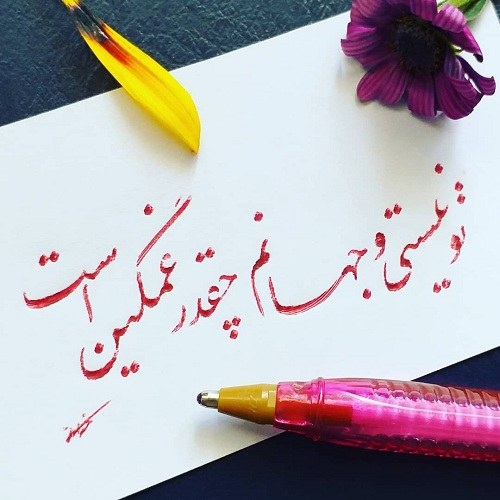 تو نیستی و جهانم چقدر غمگین است